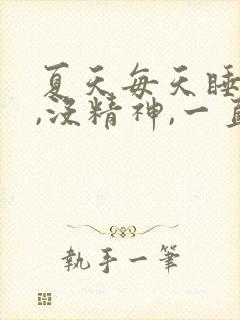 夏天每天睡
,没精神,一直
执手一笔